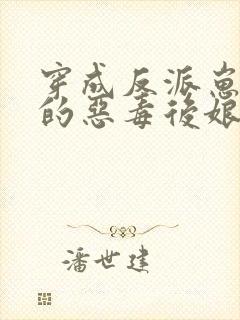 穿成反派崽
的惡毒後娘
潘世建